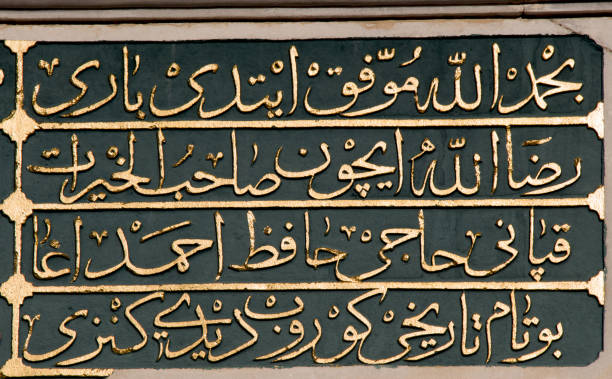 بحمد الله موفق ايتدى بارى
رضاء الله ايچون صاحب الخيرات
قپانى حاجى حافظ احمد اغا
بو تام تاريخى كوروب ديدى كنزى